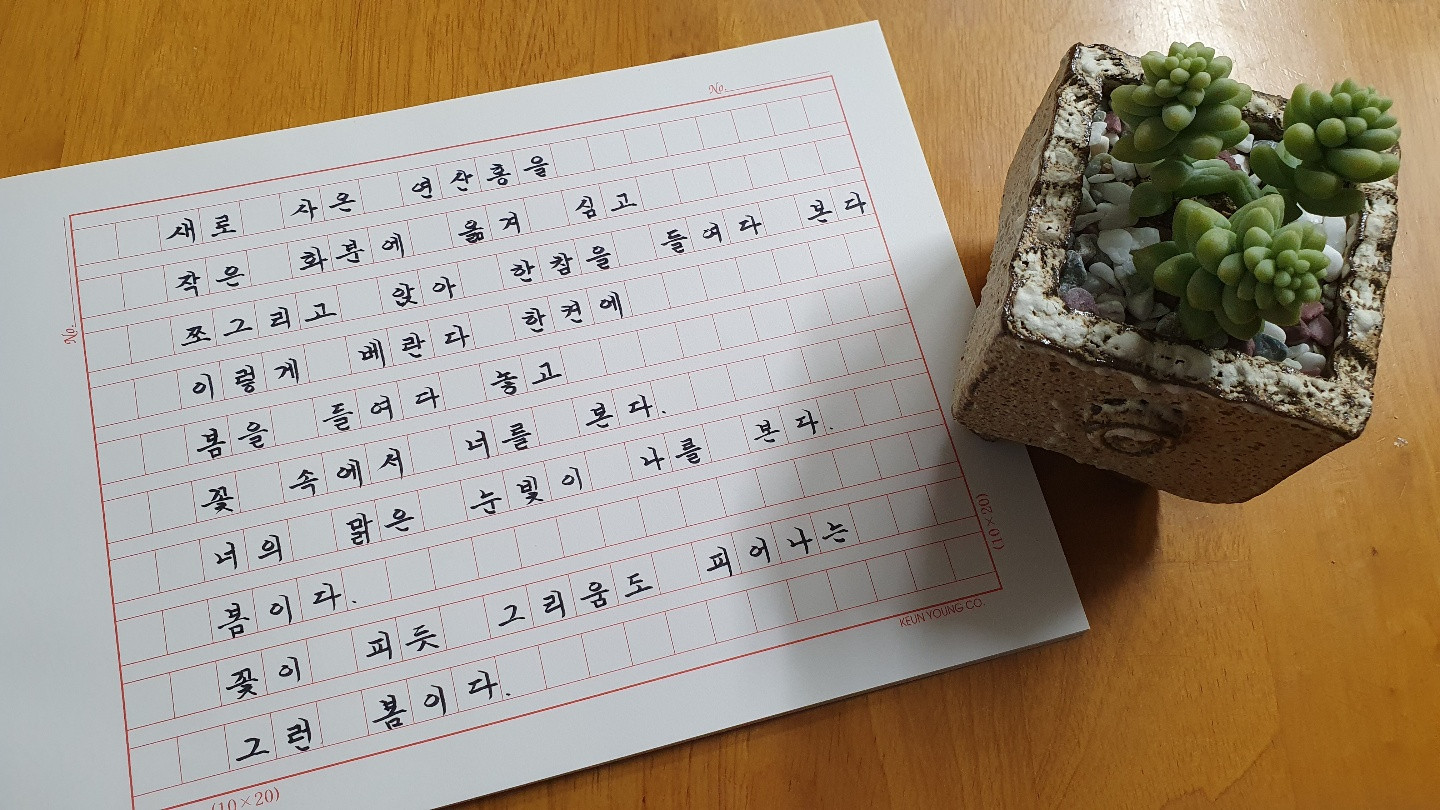 No.
새로 사온 연산홍을
작은 화분에 옮겨 심고
쪼그리고 앉아 한참을 들여다 본다
이렇게 베란다 한켠에
봄을 들여다 놓고
꽃 속에서 너를 본다.
너의 맑은 눈빛이 나를 본다.
봄이다.
꽃이 피듯 그리움도 피어나는
그런 봄이다.
No.
(10×20)
KEUN YOUNG CO.
(10×20)